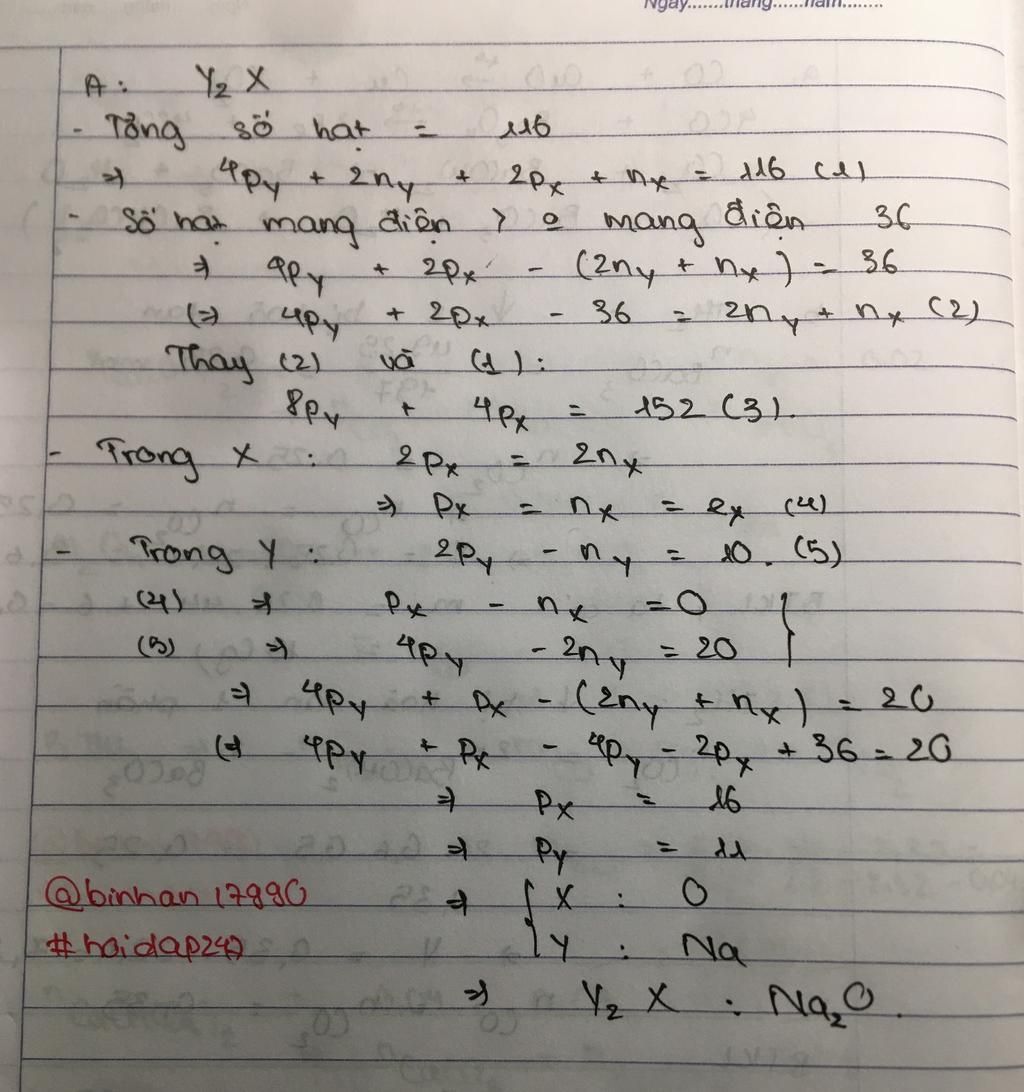 Ngày.......tháng......năm........
A: Y₂X
- Tổng số hạt = 116
=> 4pY + 2nY + 2pX + nX = 116 (1)
- Số hạt mang điện > o mang điện 36
=> 4pY + 2pX - (2nY + nX) = 36
(=> 4pY + 2pX - 36 = 2nY + nX (2)
Thay (2) và (1):
8pY + 4pX = 152 (3).
- Trong X: 2pX = 2nX
=> pX = nX = eX (4)
- Trong Y: 2pY - nY = 10. (5)
(4) => pX - nX = 0 }
(5) => 4pY - 2nY = 20
=> 4pY + pX - (2nY + nX) = 20
(=> 4pY + pX - 4pY - 2pX + 36 = 20
=> pX = 16
=> pY = 11
@binhan17990 => { X : O
#hoidap247 Y : Na
=> Y₂X : Na₂O.